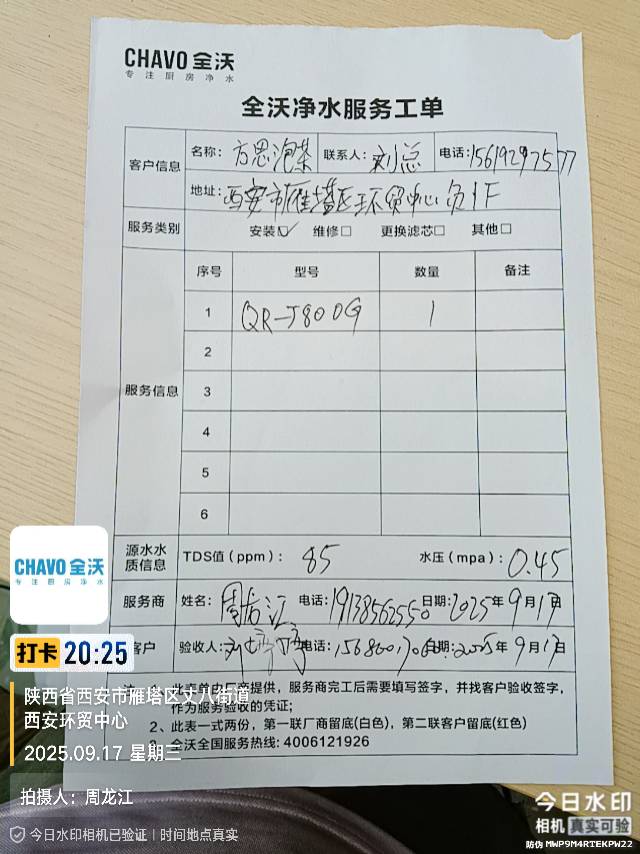 CHAVO 全沃
专注厨房净水
全沃净水服务工单
客户信息
名称: 方思泡茶 联系人: 刘总 电话: 15619297577
地址: 西安市雁塔区环贸中心负1F
服务类别 安装☑ 维修□ 更换滤芯□ 其他□
服务信息
序号 型号 数量 备注
1 QR-J800G 1
2
3
4
5
6
源水水质信息 TDS值(ppm): 85 水压(mpa): 0.45
服务商 姓名: 周龙江 电话: 19138562550 日期: 2025年9月17日
客户 验收人: 电话: 日期: 2025年9月17日
注: 1、此表单由厂家提供，服务商完工后需要填写签字，并找客户验收签字，
作为服务验收的凭证;
2、此表一式两份，第一联厂商留底(白色)，第二联客户留底(红色)
全沃全国服务热线: 4006121926
CHAVO 全沃
专注厨房净水
打卡 20:25
陕西省西安市雁塔区丈八街道
西安环贸中心
2025.09.17 星期三
拍摄人: 周龙江
今日水印相机已验证 | 时间地点真实
今日水印
相机 真实可验
防伪 MWP9M4RTEKPW22